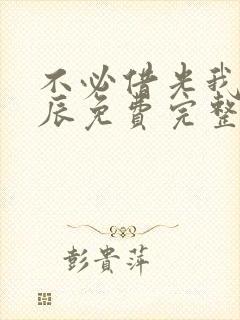 不必借光我
辰免費完整
彭貴萍